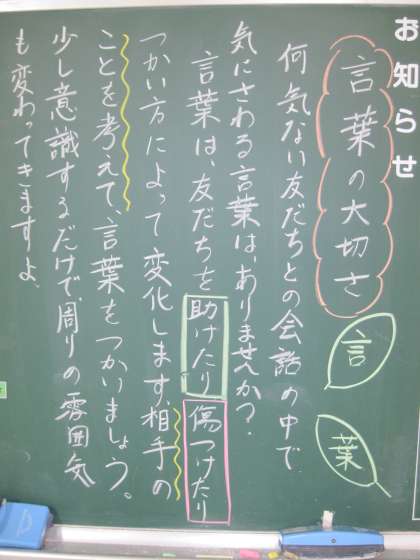 お知らせ
言葉の大切さ
言
葉
何気ない友だちとの会話の中で
気にさわる言葉は、ありませんか？
言葉は、友だちを助けたり傷つけたり
つかい方によって変化します。相手の
ことを考えて、言葉をつかいましょう。
少し意識するだけで、周りの雰囲気
も変わってきますよ。